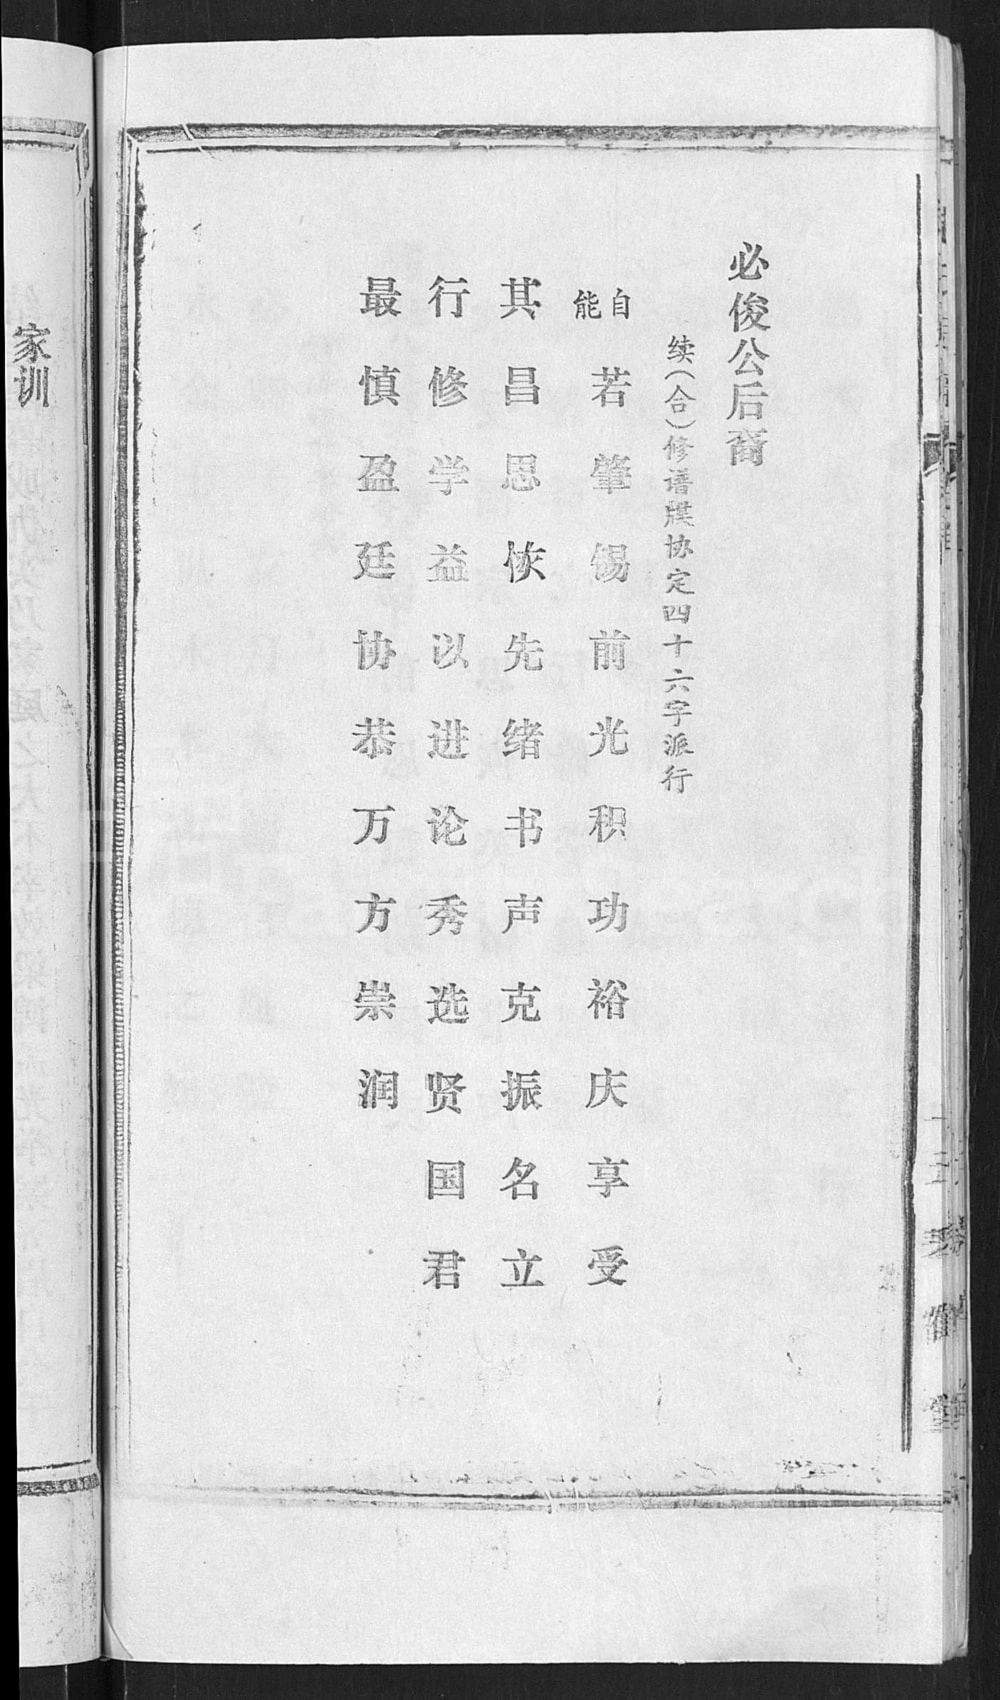 必俊公后裔
续(合)修谱牒协定四十六字派行
自能 若肇锡前光积功裕庆享受
其昌思恢先绪书声克振名立
行修学益以进论秀选贤国君
最慎盈廷协恭万方崇润
家训